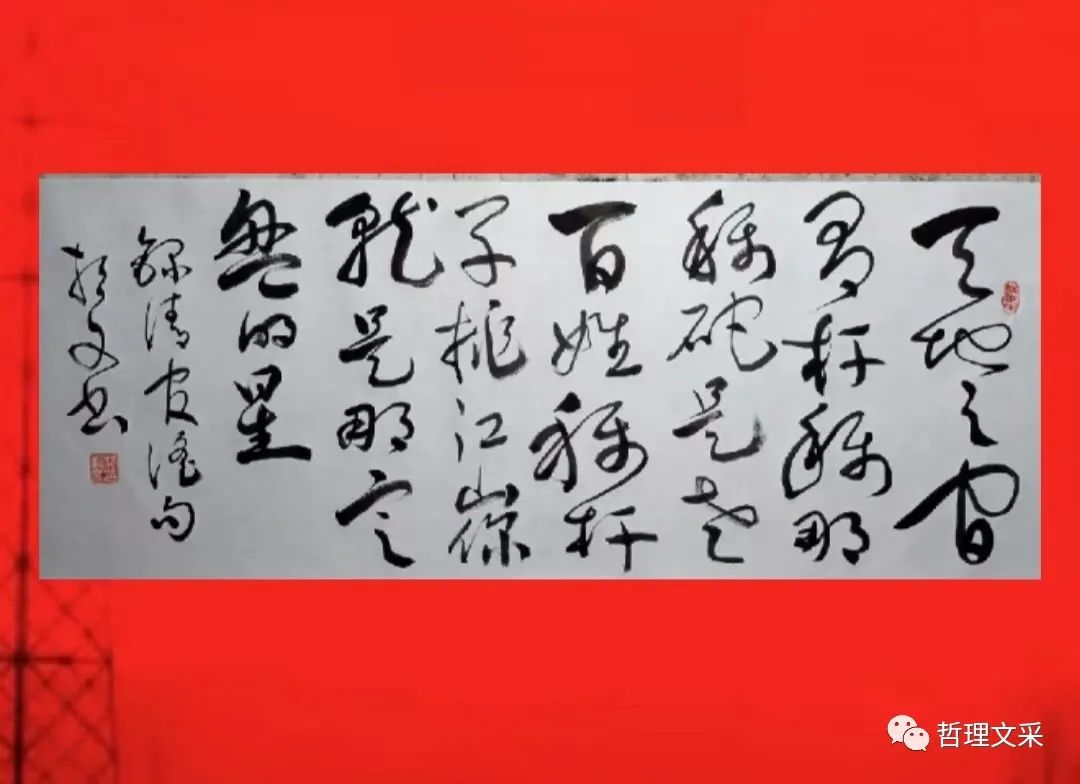 天地之间
有杆稱那
稱砣是老
百姓稱杆
子挑江山你
就是那定
盤的星
錄清官谣句
文书
哲理文采